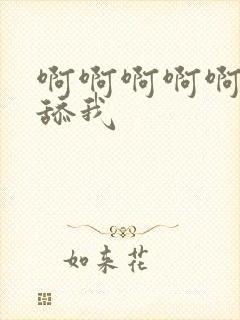 啊啊啊啊啊
舔我
如来花